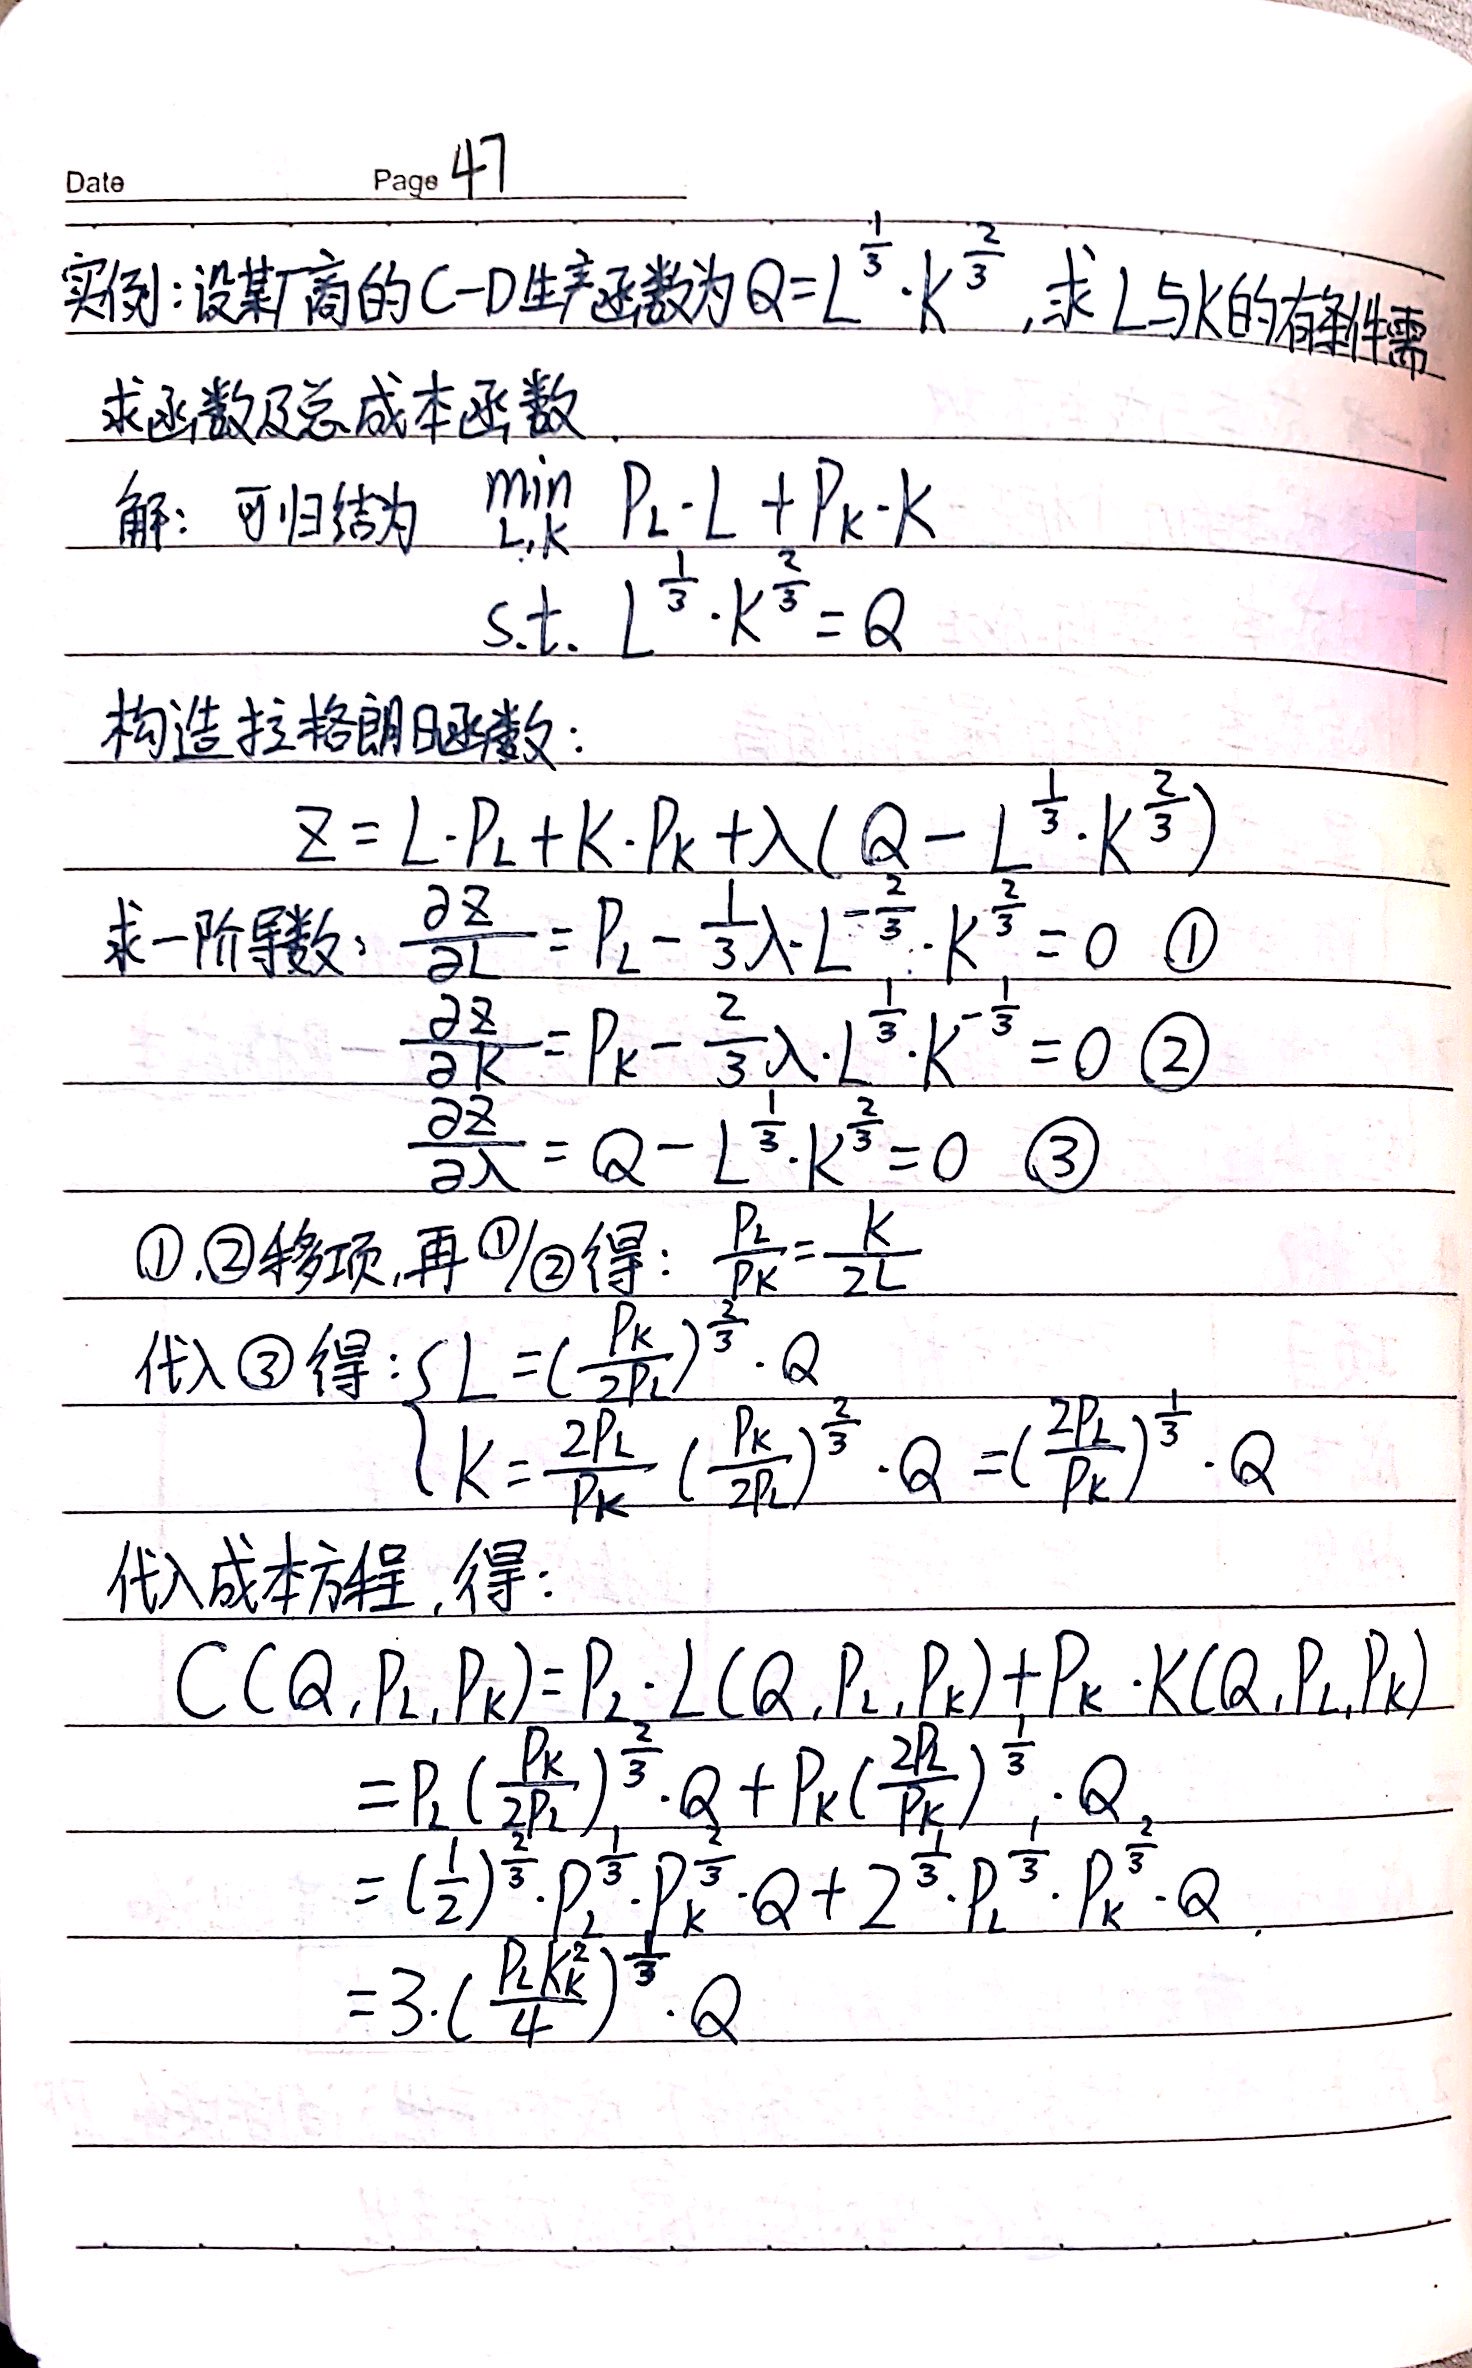 Date Page 47
实例:设某厂商的C-D生产函数为Q=L^{1/3}·K^{2/3},求L与K的有条件需
求函数及总成本函数.
解: 可归结为 min_{L,K} P_L·L+P_K·K
s.t. L^{1/3}·K^{2/3}=Q
构造拉格朗日函数:
Z=L·P_L+K·P_K+λ(Q-L^{1/3}·K^{2/3})
求一阶导数: ∂Z/∂L=P_L-1/3λ·L^{-2/3}·K^{2/3}=0 ①
∂Z/∂K=P_K-2/3λ·L^{1/3}·K^{-1/3}=0 ②
∂Z/∂λ=Q-L^{1/3}·K^{2/3}=0 ③
①.②移项,再①/②得: P_L/P_K=K/2L
代入③得:{L=(P_K/2P_L)^{2/3}·Q
K=2P_L/P_K(P_K/2P_L)^{2/3}·Q=(2P_L/P_K)^{1/3}·Q
代入成本方程,得:
C(Q,P_L,P_K)=P_L·L(Q,P_L,P_K)+P_K·K(Q,P_L,P_K)
=P_L(P_K/2P_L)^{2/3}·Q+P_K(2P_L/P_K)^{1/3}·Q
=(1/2)^{2/3}·P_L^{1/3}·P_K^{2/3}·Q+2^{1/3}·P_L^{1/3}·P_K^{2/3}·Q.
=3·(P_L K_K^2/4)^{1/3}·Q